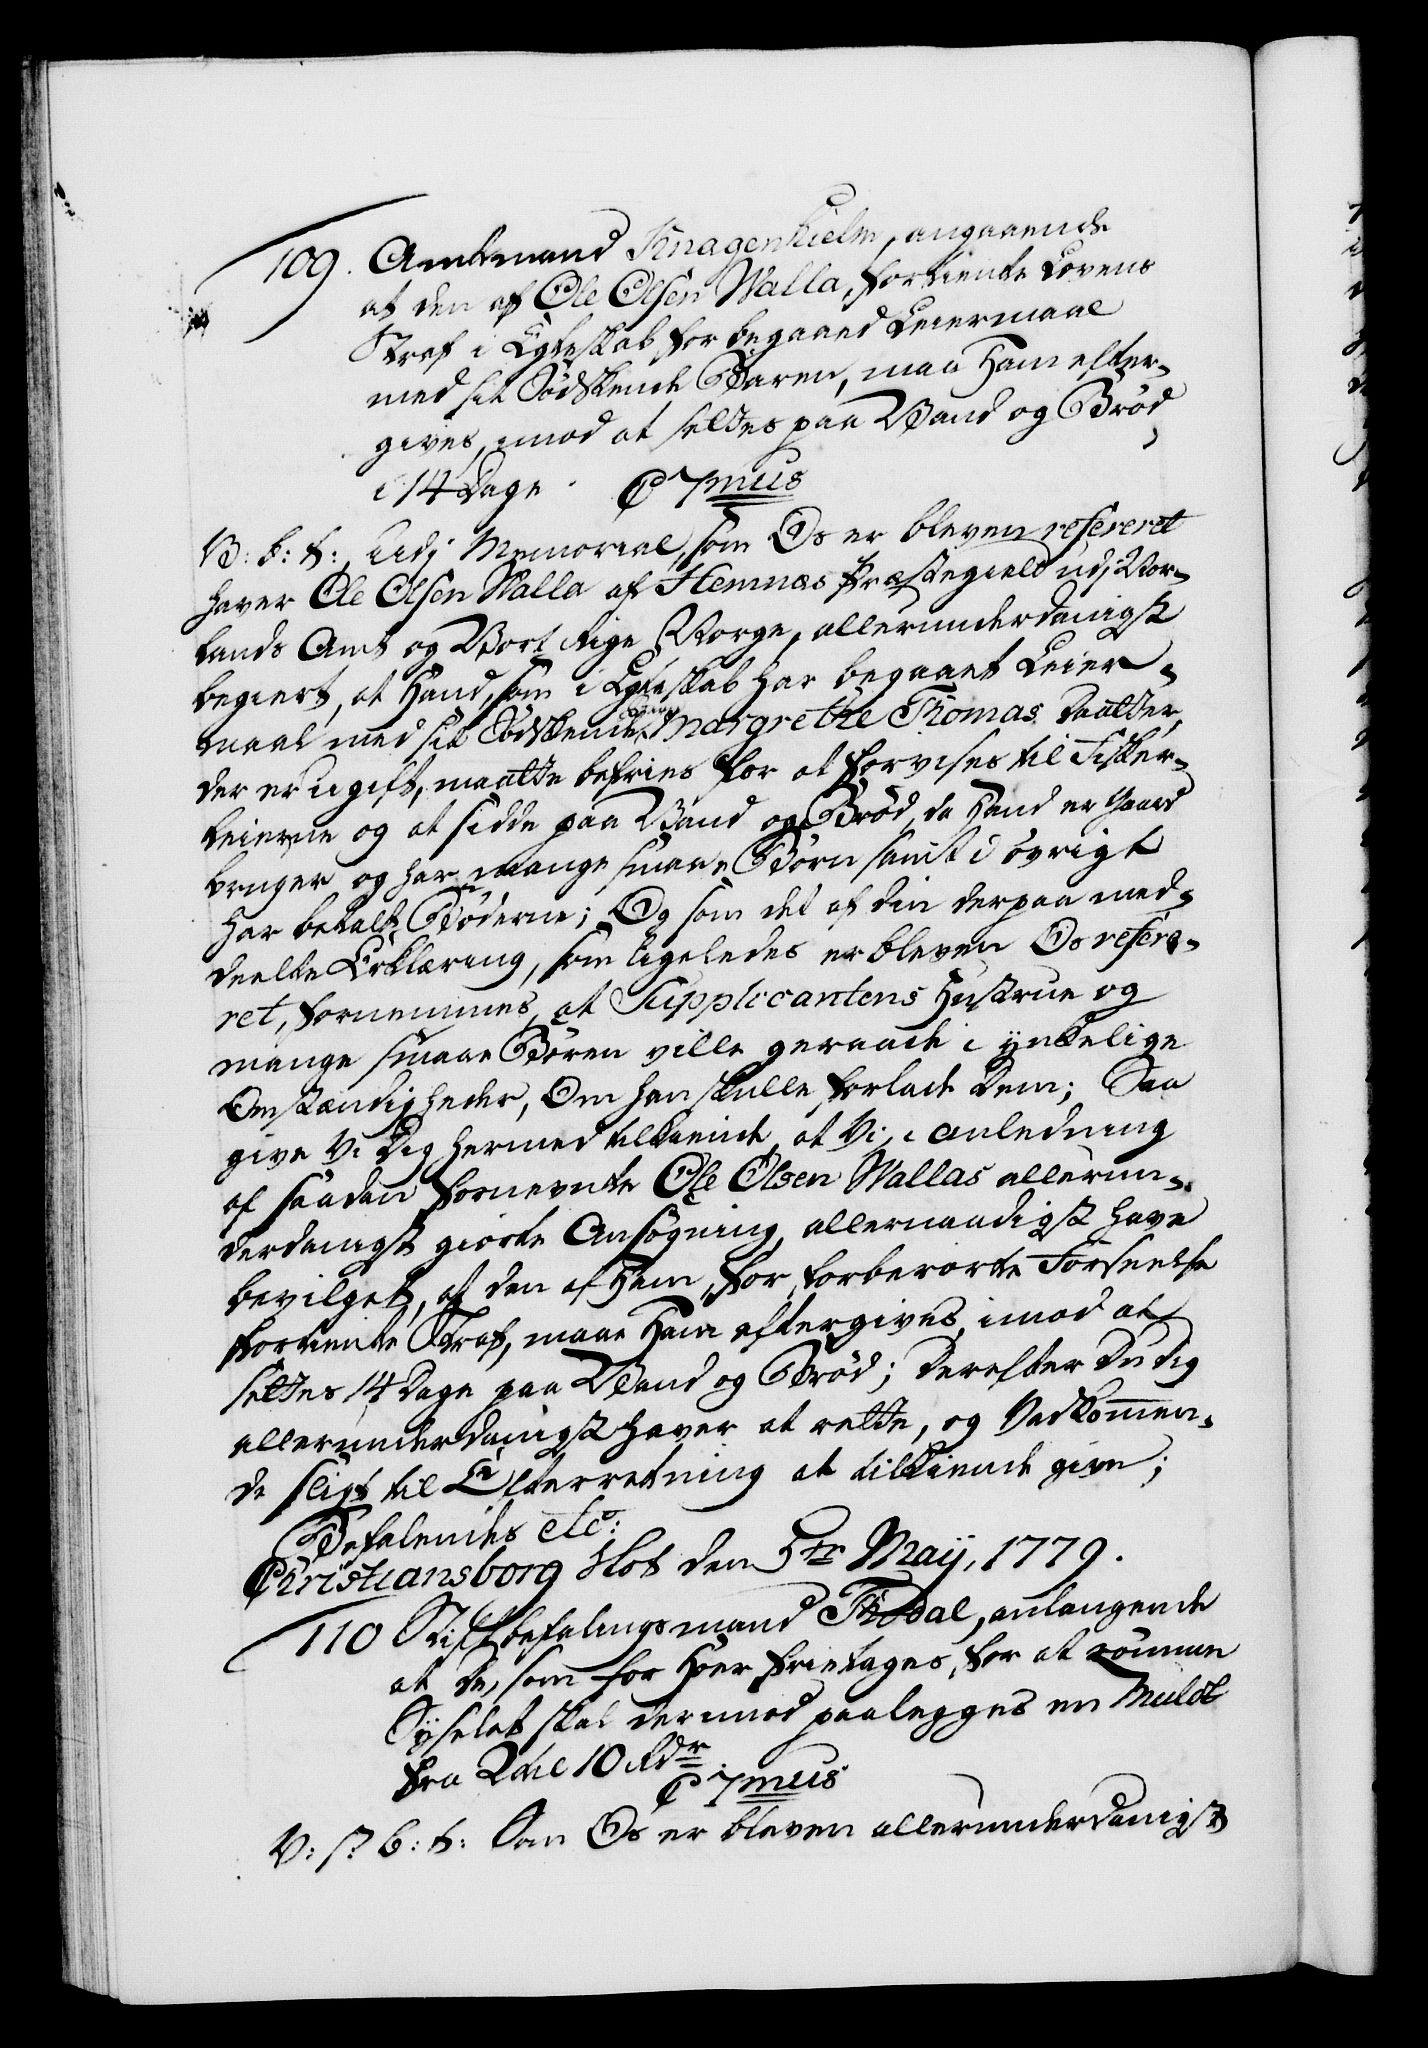 109. Amtmand Knagenhielm, angaaende
at den af Ole Olsen Walla, fortiente Lovens
Straf i Egteskab for begaaed Leiermaal
med sit Sødskende Baren, maa Ham efter-
gives, imod at settes paa Vand og Brød
i 14 Dage. C 7mus
V: b: t:, Udj Memorial, som Os er bleven refereret
haver Ole Olsen Walla af Hemnæs Præstegield udj Nor-
lands Amt og Vort Rige Norge, allerunderdanigst
begiert, at Hand, som i Egteskab har begaaet Leier-
maal med sit Sødskende Barn Margrethe Thomas Daatter,
der er ugift, maatte befries for at forvises til Fisker-
leierne og at sidde paa Vand og Brød, da Hand er Gaard
bruger og har mange smaae Børn samt i øvrigt
har betalt Bøderne; Og som det af din derpaa med-
deelte Erklæring, som ligeledes er bleven Os refere-
ret, fornemmes, at Supplicantens Hustrue og
mange smaae Børen ville geraade i ynkelige
Omstændigheder, Om han skulle forlade Dem; Saa
give Vi Dig hermed tilkiende, at Vi, i Anledning
af saadan fornevnte Ole Olsen Wallas allerun-
derdanigst giorte Ansøgning, allernaadigst have
bevilget, at den af Ham, for forberørte Forseelse
fortiente Straf, maae Ham eftergives, imod at
settes 14 Dage paa Vand og Brød; Derefter Du dig
allerunderdanigst haver at rette, og Vedkommen-
de sligt til Efterretning at tilkiende give;
Befalendes etc:
Christiansborg Slot den 5te Maij, 1779.
110 Stiftbefalingsmand Thodal, anlangende
at de, som for Hoer frietages, for at rømme
Sysselet skal derimod paalegges en Mulct
fra 2 til 10 Rdr C 7mus
V: s? b: t: Som Os er bleven allerunderdanigst